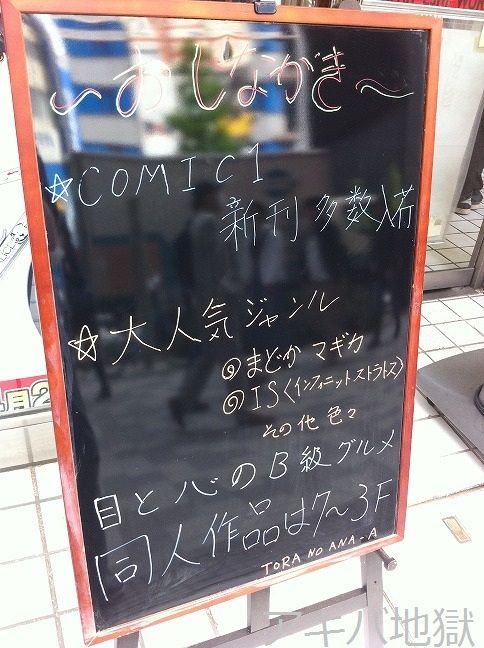 ～おしながき～
☆COMIC1
新刊 多数入荷
☆大人気ジャンル
◎まどかマギカ
◎IS<インフィニットストラトス>
その他 色々
目と心のB級グルメ
同人作品は7～3F
TORA NO ANA-A
月2
アキバ地獄